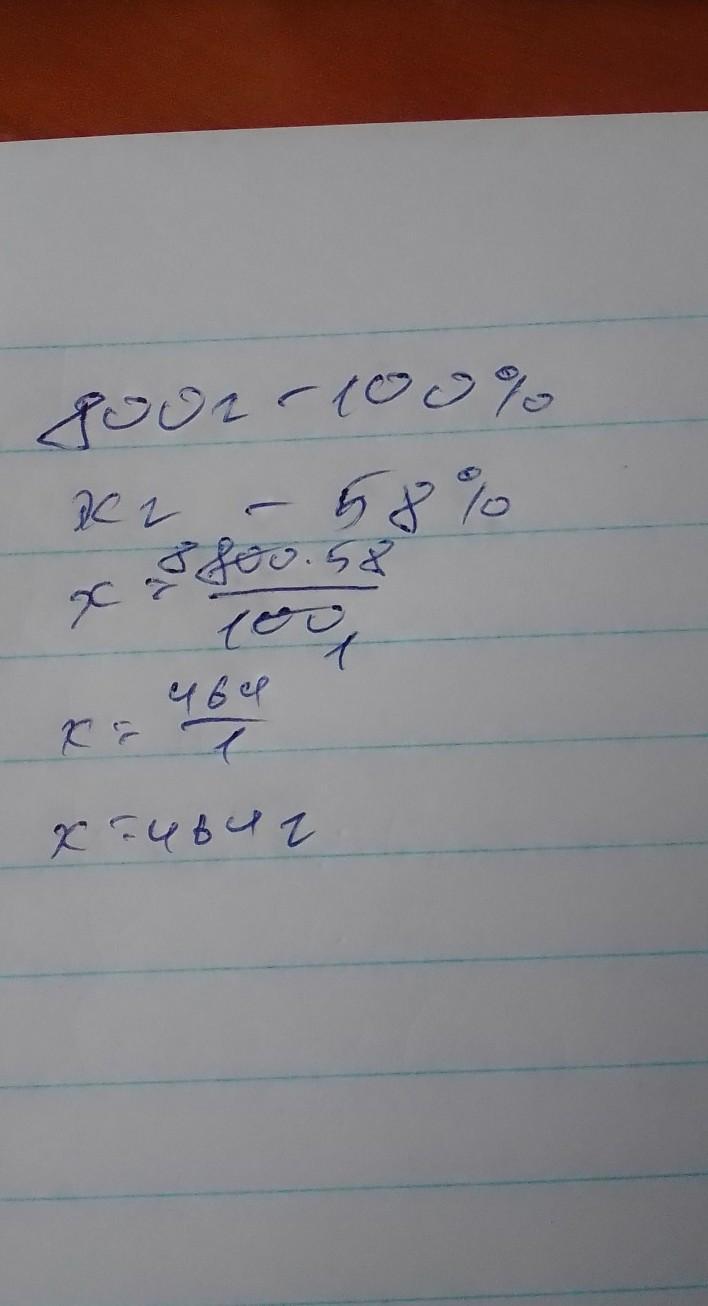 800г - 100%
хг - 58%
х = 8 800·58 / 100 1
х = 464 / 1
х = 464 г